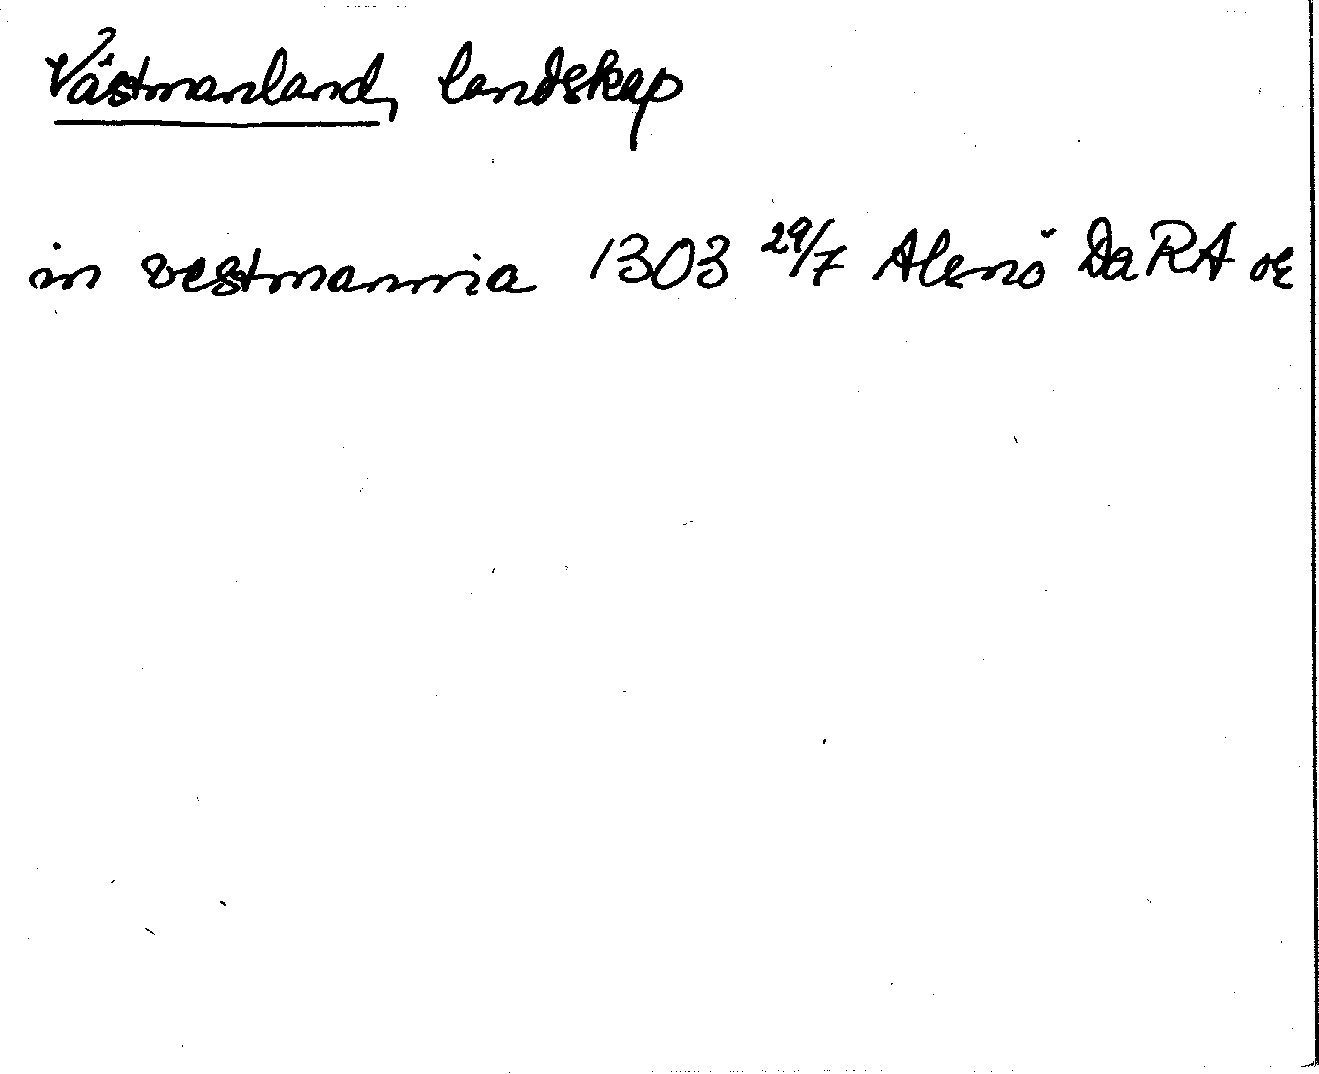 Västmanland, landskap
in vestmannia 1303 29/7 Alsnö DaRA or